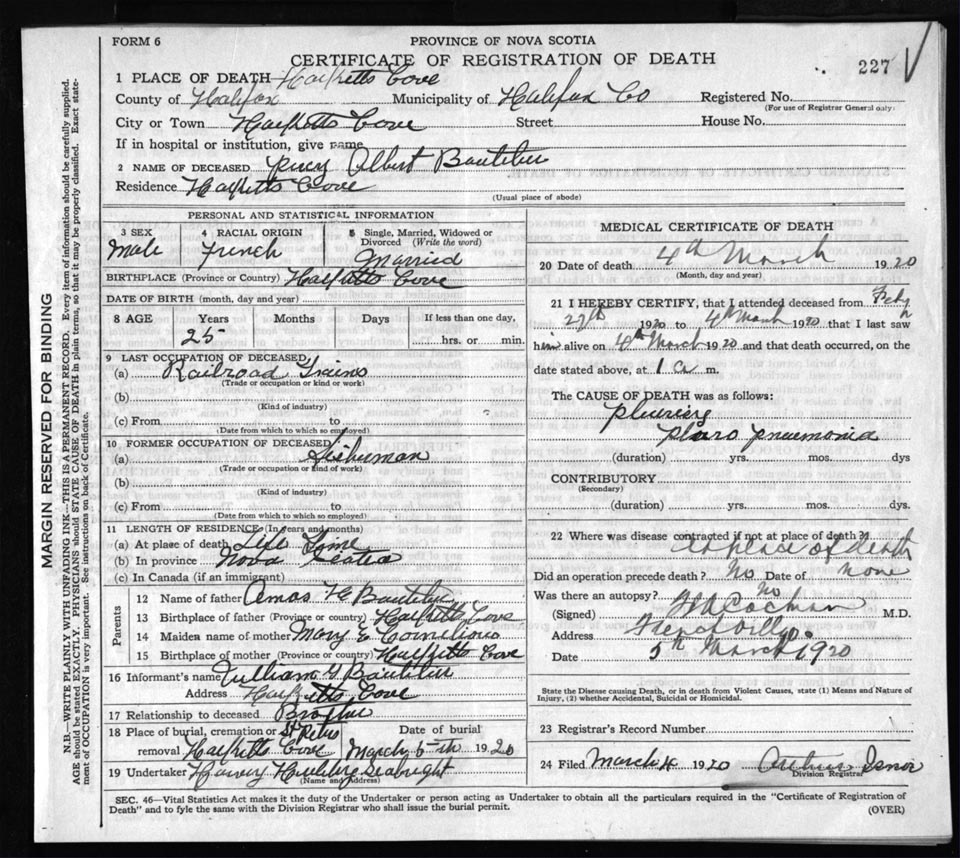 FORM 6
PROVINCE OF NOVA SCOTIA
CERTIFICATE OF REGISTRATION OF DEATH
227
1 PLACE OF DEATH Hacketts Cove
County of Halifax Municipality of Halifax Co Registered No.
(For use of Registrar General only)
City or Town Hacketts Cove Street House No.
If in hospital or institution, give name
2 NAME OF DECEASED Percy Albert Boutilier
Residence Hacketts Cove
(Usual place of abode)
PERSONAL AND STATISTICAL INFORMATION
3 SEX 4 RACIAL ORIGIN 5 Single, Married, Widowed or Divorced (Write the word)
Male French Married
BIRTHPLACE (Province or Country) Hacketts Cove
DATE OF BIRTH (month, day and year)
8 AGE Years Months Days If less than one day,
25 hrs. or min.
9 LAST OCCUPATION OF DECEASED
(a) Railroad
(Trade or occupation or kind of work)
(b)
(Kind of industry)
(c) From to
(Date from which to which so employed)
10 FORMER OCCUPATION OF DECEASED
(a) Fisherman
(Trade or occupation or kind of work)
(b)
(Kind of industry)
(c) From to
(Date from which to which so employed)
11 LENGTH OF RESIDENCE (In years and months)
(a) At place of death Life Time
(b) In province Nova Scotia
(c) In Canada (if an immigrant)
Parents
12 Name of father Amos H Boutilier
13 Birthplace of father (Province or country) Hacketts Cove
14 Maiden name of mother Mary E Cornelious
15 Birthplace of mother (Province or country) Hacketts Cove
16 Informant's name William G Boutilier
Address Hacketts Cove
17 Relationship to deceased Brother
18 Place of burial, cremation or removal St Peters Hacketts Cove
Date of burial March 5th 1920
19 Undertaker Harvey Hubley Seabright
(Name and Address)
MEDICAL CERTIFICATE OF DEATH
20 Date of death 4th March 1920
(Month, day and year)
21 I HEREBY CERTIFY, that I attended deceased from Feby
27th 1920 to 4th March 1920 that I last saw h
him alive on 4th March 1920 and that death occurred, on the
date stated above, at 1 a m.
The CAUSE OF DEATH was as follows:
Pleurisy
pneumonia
(duration) yrs. mos. dys
CONTRIBUTORY
(Secondary)
(duration) yrs. mos. dys.
22 Where was disease contracted if not at place of death?
at place of death
Did an operation precede death? No Date of none
Was there an autopsy? No
(Signed) Cochran M.D.
Address French Village
Date 5th March 1920
State the Disease causing Death, or in death from Violent Causes, state (1) Means and Nature of
Injury, (2) whether Accidental, Suicidal or Homicidal.
23 Registrar's Record Number
24 Filed March 4 1920 Arthur Isnor
Division Registrar
SEC. 46—Vital Statistics Act makes it the duty of the Undertaker or person acting as Undertaker to obtain all the particulars required in the "Certificate of Registration of
Death" and to fyle the same with the Division Registrar who shall issue the burial permit.
(OVER)
MARGIN RESERVED FOR BINDING
N.B.—WRITE PLAINLY WITH UNFADING INK—THIS IS A PERMANENT RECORD. Every item of information should be carefully supplied.
AGE should be stated EXACTLY. PHYSICIANS should STATE CAUSE OF DEATH in plain terms, so that it may be properly classified. Exact state-
ment of OCCUPATION is very important. See instructions on back of Certificate.